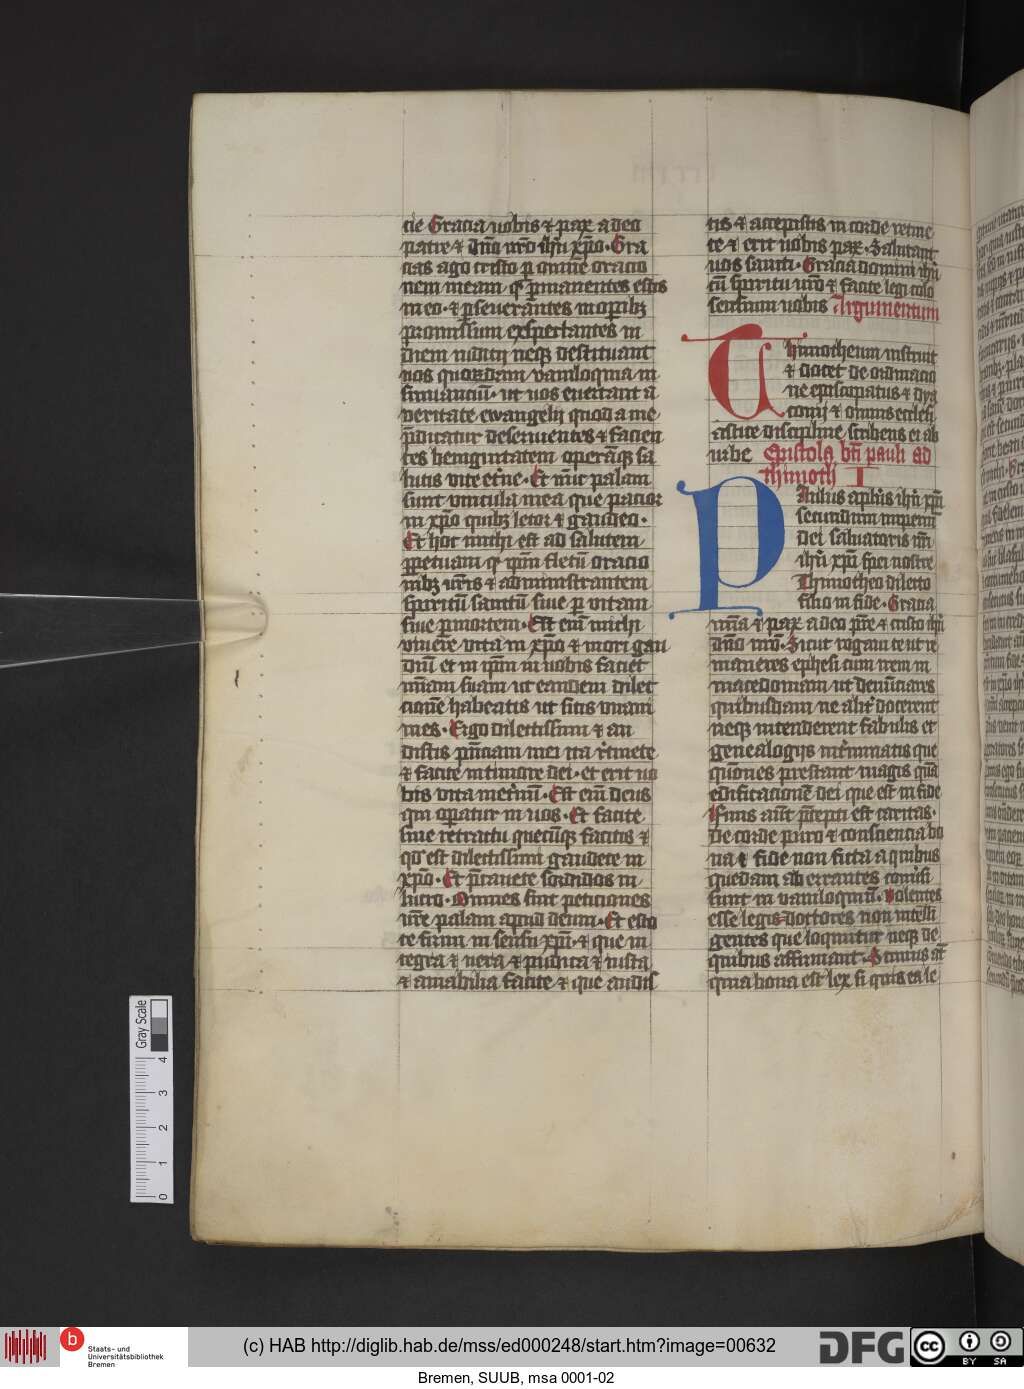 cie Gracia uobis ⁊ pax a deo
patre ⁊ dn̄o nr̄o ih̄u xp̄o. Gra
cias ago cristo ꝑ omnē oracio
nem meam qꝫ ꝑmanentes estis
in eo. ⁊ ꝑseuerantes in oꝑibꝫ
promissum exspectantes in
diem iudicij neqꝫ destituant
uos quorūdam vaniloquia in
sinuanciūm. ut uos euertant a
veritate ewangelij quod a me
p̄dicatur deseruientes ⁊ facien
tes benignitatem operāqꝫ sa
lutis vite et̄ne. Et nūc palam
sunt vincula mea que pacior
in xp̄o quibꝫ letor ⁊ gaudeo.
Et hoc michi est ad salutem
ꝑpetuam qꝫ ip̄m fletū oracio
nibꝫ ur̄is ⁊ administrantem
spiritū sanctū siue ꝑ vitam
siue ꝑ mortem. Est em̄ michi
viuere vita in xp̄o ⁊ mori gau
diū et in ip̄m in uobis faciet
mīam suam ut eandem dilec
cionē habeatis ut sitis vnani
mes. Ergo dilectissimi ⁊ au
distis p̄nciam mei ita r̄tinete
⁊ facite in timore dei. et erit uo
bis vita in et̄nūm. Est em̄ deus
qui oꝑatur in uos. Et facite
sine retractu quecūqꝫ facitis ⁊
qd̄ est dilectissimi gaudete in
xp̄o. Et p̄cauete sordidos in
lucro. Omnes sint peticiones
ur̄e palam apud deum. Et esto
te firmi in sensu xp̄i. ⁊ que in
tegra ⁊ uera ⁊ pudica ⁊ iusta
⁊ amabilia facite ⁊ que audis
tis ⁊ accepistis in corde retine
te ⁊ erit uobis pax. Salutant
uos sancti. Gracia domini ih̄u
cū spiritu ur̄o ⁊ facite legi colo
sensium uobis Argumentum
Thimotheum instruit
⁊ docet de ordinacio
ne episcopatus ⁊ dya
conij ⁊ omnis ecclesi
astice discipline scribens ei ab
urbe Epistola bt̄i pauli ad
thimoth I
Paulus apl̄us ih̄u xp̄i
secundum imperiū
dei saluatoris nr̄i
ih̄u xp̄i spei nostre
Thimotheo dilecto
filio in fide. Gracia
mīa ⁊ pax a deo pr̄e ⁊ cristo ih̄u
dn̄o nr̄o. Sicut rogaui te ut re
maneres ephesi cum irem in
macedoniam ut denūciares
quibusdam ne alit̄ docerent
neqꝫ intenderent fabulis et
genealogijs int̄minatis que
q̄uones prestant magis quā
edificacionē dei que est in fide
Finis aūt p̄cepti est caritas.
de corde puro ⁊ consciencia bo
na ⁊ fide non ficta a quibus
quedam aberrantes conūsi
sunt in vaniloquiū. Volentes
esse legis doctores non intelli
gentes que loquntur neqꝫ de
quibus affirmant. Scimus aūt
quia bona est lex si quis ea le
Gray Scale
4
3
2
1
0
b
Staats- und
Universitätsbibliothek
Bremen
(c) HAB http://diglib.hab.de/mss/ed000248/start.htm?image=00632
DFG
cc
BY SA
Bremen, SUUB, msa 0001-02